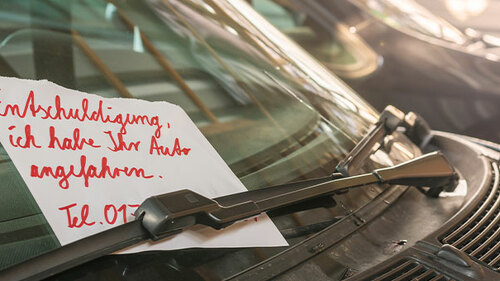 Entschuldigung,
ich habe Ihr Auto
angefahren.
Tel. 017